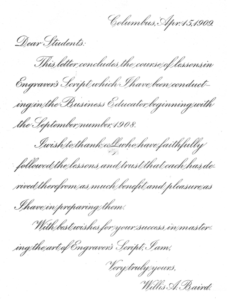 Columbus, Apr. 15, 1909.
Dear Students:
This letter concludes the course of lessons in
Engraver's Script which I have been conduct-
ing in the Business Educator beginning with
the September number 1908.
I wish to thank all who have faithfully
followed the lessons, and trust that each has de-
rived therefrom as much benefit and pleasure as
I have in preparing them.
With best wishes for your success in master-
ing the art of Engraver's Script, I am,
Very truly yours,
Willis A. Baird.